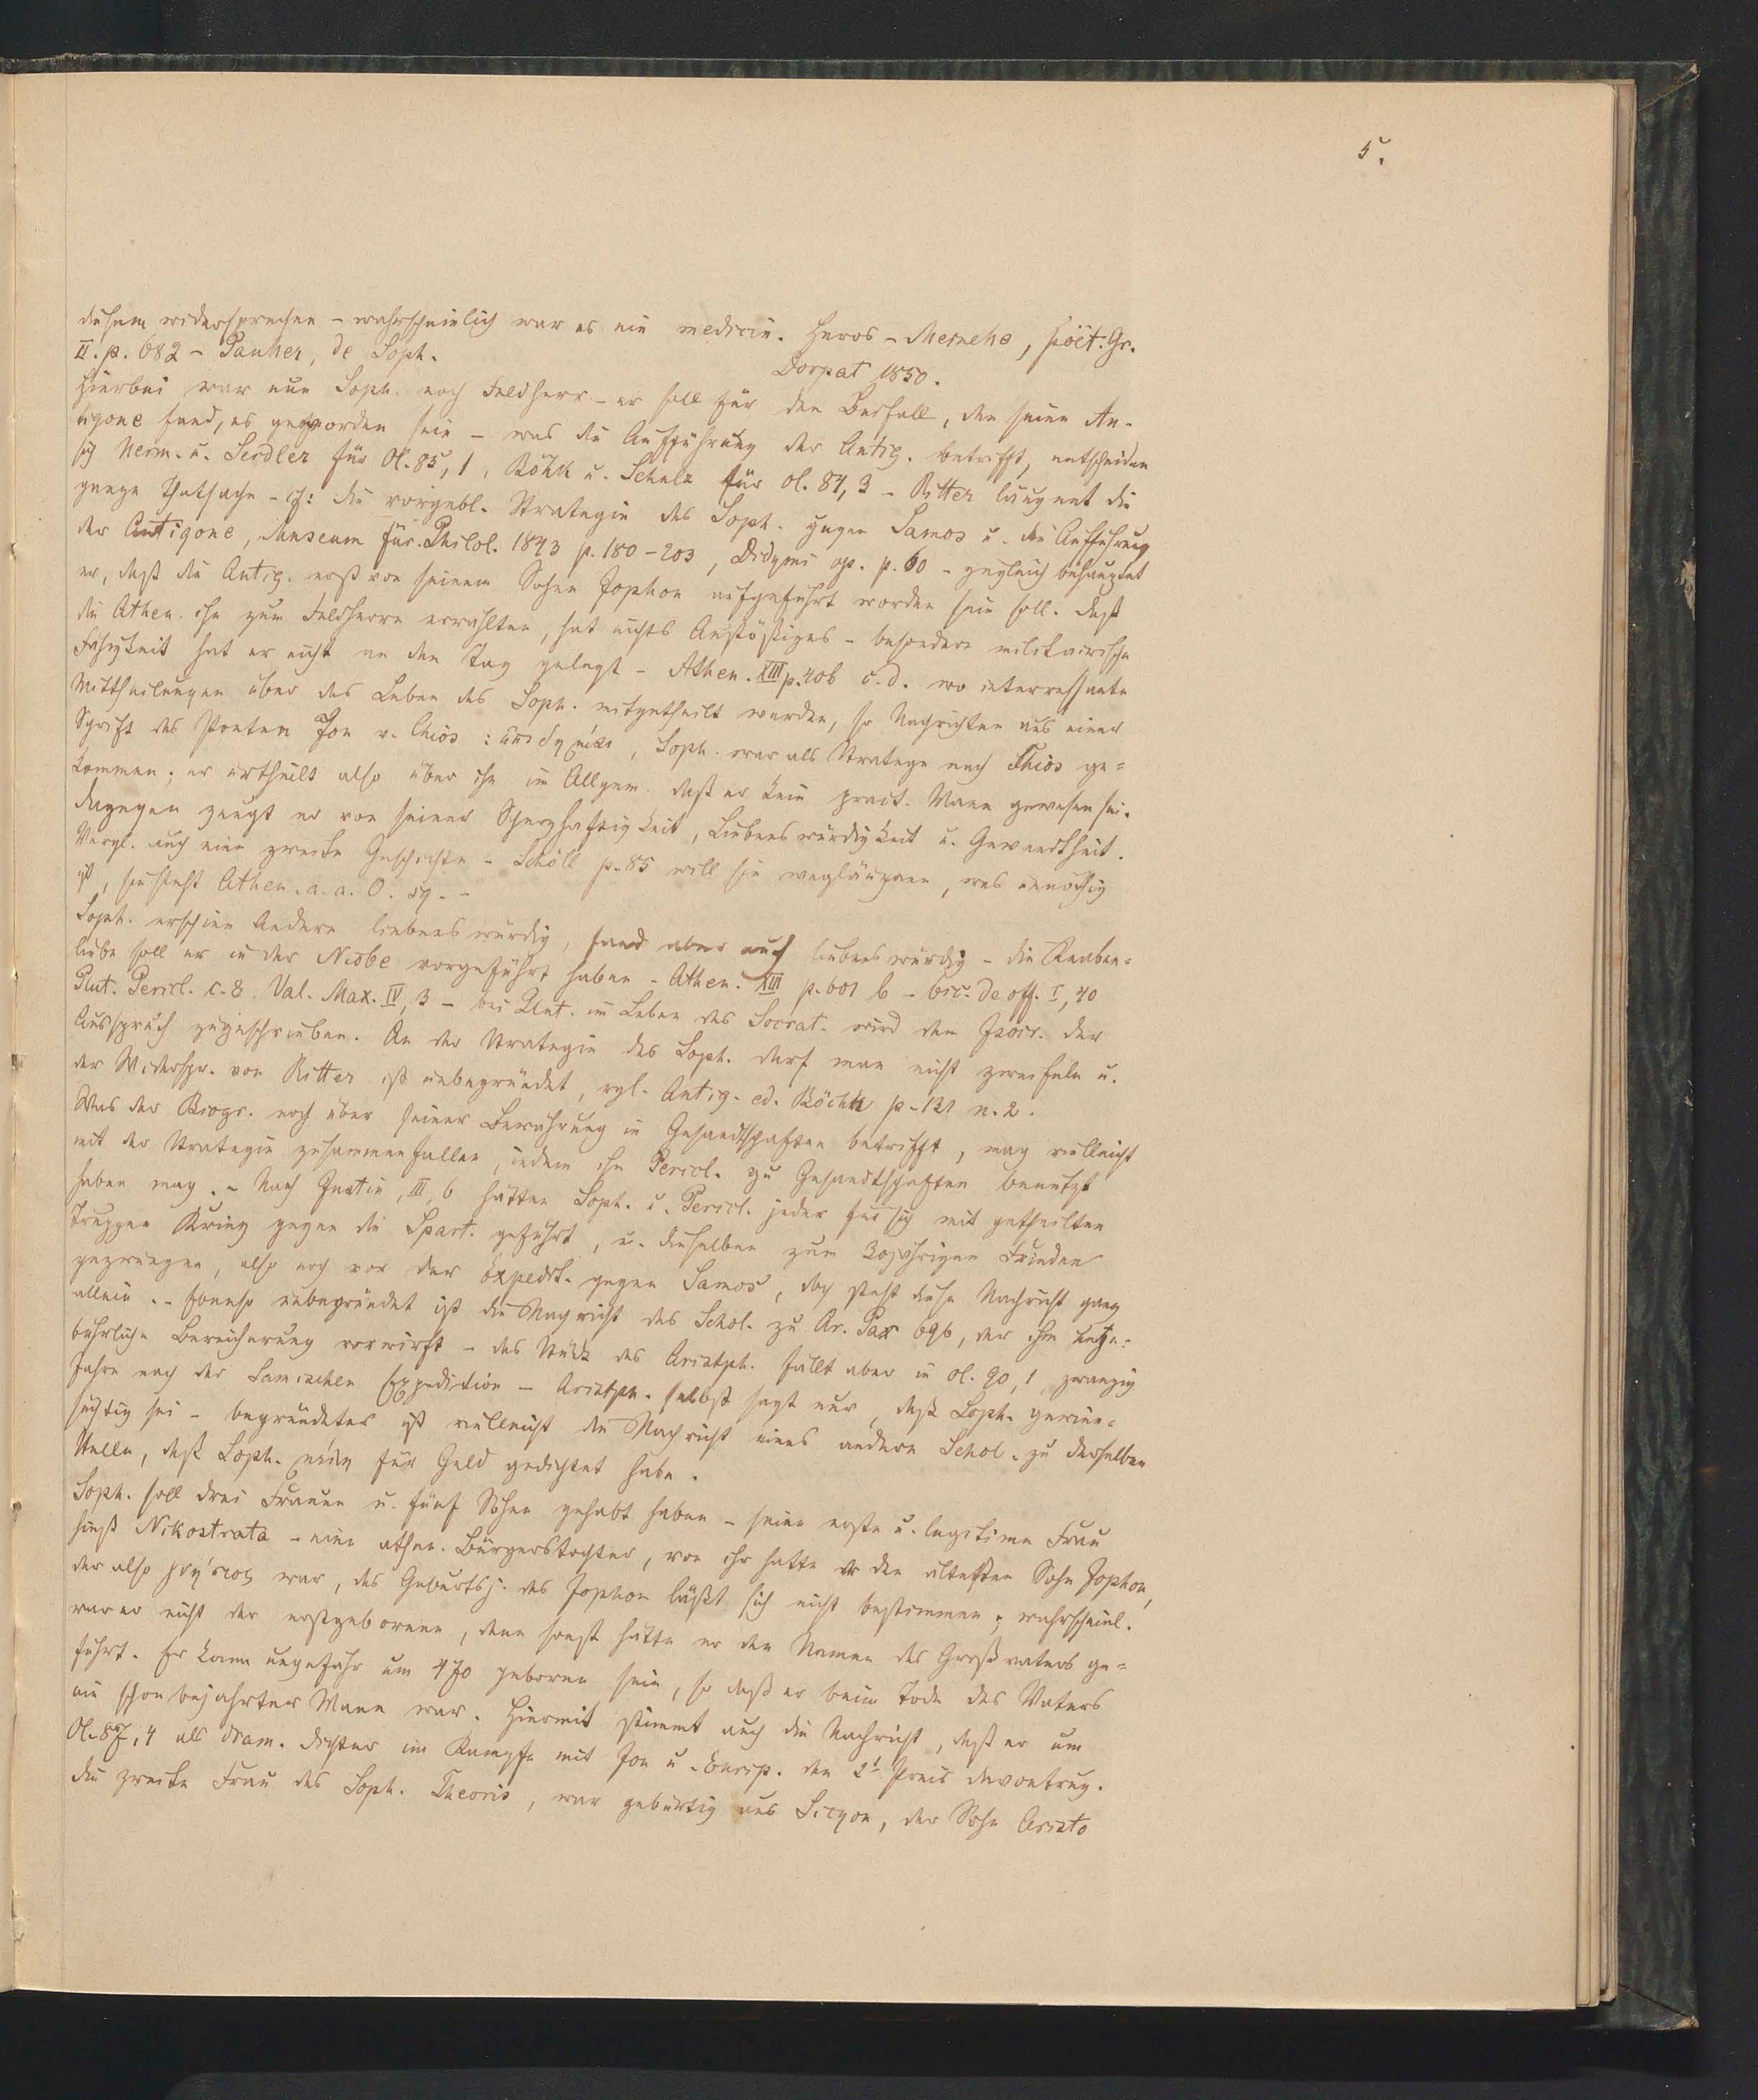 5.
diesem widersprechen – wahrscheinlich war es ein medicin. Heros – Meineke, poët. Gr.
II. p. 682 – Pauker, de Soph.
Dorpat 1850.
Hierbei war nun Soph. noch Feldherr – er soll für den Beifall, den seine An-
tigone fand, es geworden sein – was die Aufführung der Antig. betrifft, entscheiden
sich Herm. u. Seidler für Ol. 85, 1, Böhk u. Schulz für Ol. 84, 3 – Ritter läugnet die
ganze Thatsache – die vorgebl. Strategie des Soph. gegen Samos u. die Aufführung
der Antigone, Museum für Philol. 1843 p. 180–203, Didymi op. p. 60 – zugleich behauptet
er, daß die Antig. erst von seinem Sohne Jophon aufgeführt worden sein soll. Daß
die Athen. ihn zum Feldherrn erwählten, hat nichts Anstößiges – besondere militairische
Fähigkeit hat er nicht an den Tag gelegt – Athen. XIII p. 406 c. d. wo interressante
Mittheilungen über das Leben des Soph. mitgetheilt werden, so Nachrichten aus einer
Schrift des Poeten Jon v. Chios: , Soph. war als Stratege nach Chios ge=
kommen; er urtheilt also über ihn im Allgem. daß er kein pract. Mann gewesen sei.
dagegen zeugt er von seiner Scherzhaftigkeit, Liebenswürdigkeit u. Gewandtheit.
Vergl. auch eine zweite Geschichte – Schöll p. 85 will sie wegläugnen, was unnöthig
ist, sie steht Athen. a. a. O. sq. –
Soph. erschien Andern liebenswürdig, fand aber auch liebenswürdig – die Knaben=
liebe soll er in der Niobe vorgeführt haben – Athen. XIII p. 601 b – Cic. de off. I, 40
Plut. Pericl. c. 8. Val. Max. IV, 3 – bei Plut. im Leben des Socrat. wird dem Isocr. der
Ausspruch zugeschrieben. An der Strategie des Soph. darf man nicht zweifeln u.
der Widerspr. von Ritter ist unbegründet, vgl. Antig. ed. Böckh p. 121 n. 2.
Was der Biogr. noch über seiner Bewährung in Gesandtschaften betrifft, mag vielleicht
mit der Strategie zusammenfallen, indem ihn Pericl. zu Gesandtschaften benutzt
haben mag. – Nach Justin, III, 6 hätten Soph. u. Pericl. jeder für sich mit getheilten
Truppen Krieg gegen die Spart. geführt, u. dieselben zum 30jährigen Frieden
gezwungen, also noch vor der Expedit. gegen Samos, doch steht diese Nachricht ganz
allein. – Ebenso unbegründet ist die Nachricht des Schol. zu Ar. Pax 696, der ihm unge=
bührliche Bereicherung vorwirft – das Stück des Aristph. fällt aber in Ol. 90, 1, zwanzig
Jahre nach der Samischen Expedition – Aristph. selbst sagt nur, daß Soph. gewinn=
süchtig sei – begründeter ist vielleicht die Nachricht eines andern Schol. zu derselben
Stelle, daß Soph. für Geld gedichtet habe.
Soph. soll drei Frauen u. fünf Söhne gehabt haben – seine erste u. legitime Frau
hieß Nikostrata – eine athen. Bürgerstochter, von ihr hatte er den ältesten Sohn Jophon,
der also γνήσιος war, das Geburtsj. des Jophon läßt sich nicht bestimmen; wahrscheinl.
war er nicht der erstgeborene, denn sonst hätte er den Namen des Großvaters ge=
führt. Er kann ungefähr um 470 geboren sein, so daß er beim Tode des Vaters
ein schon bejahrter Mann war. Hiermit stimmt auch die Nachricht, daß er um
Ol. 87, 4 als dram. Dichter im Kampfe mit Jon u. Eurip. den 2t Preis davontrug.
die zweite Frau des Soph. Theoris, war gebürtig aus Sicyon, der Sohn Aristo